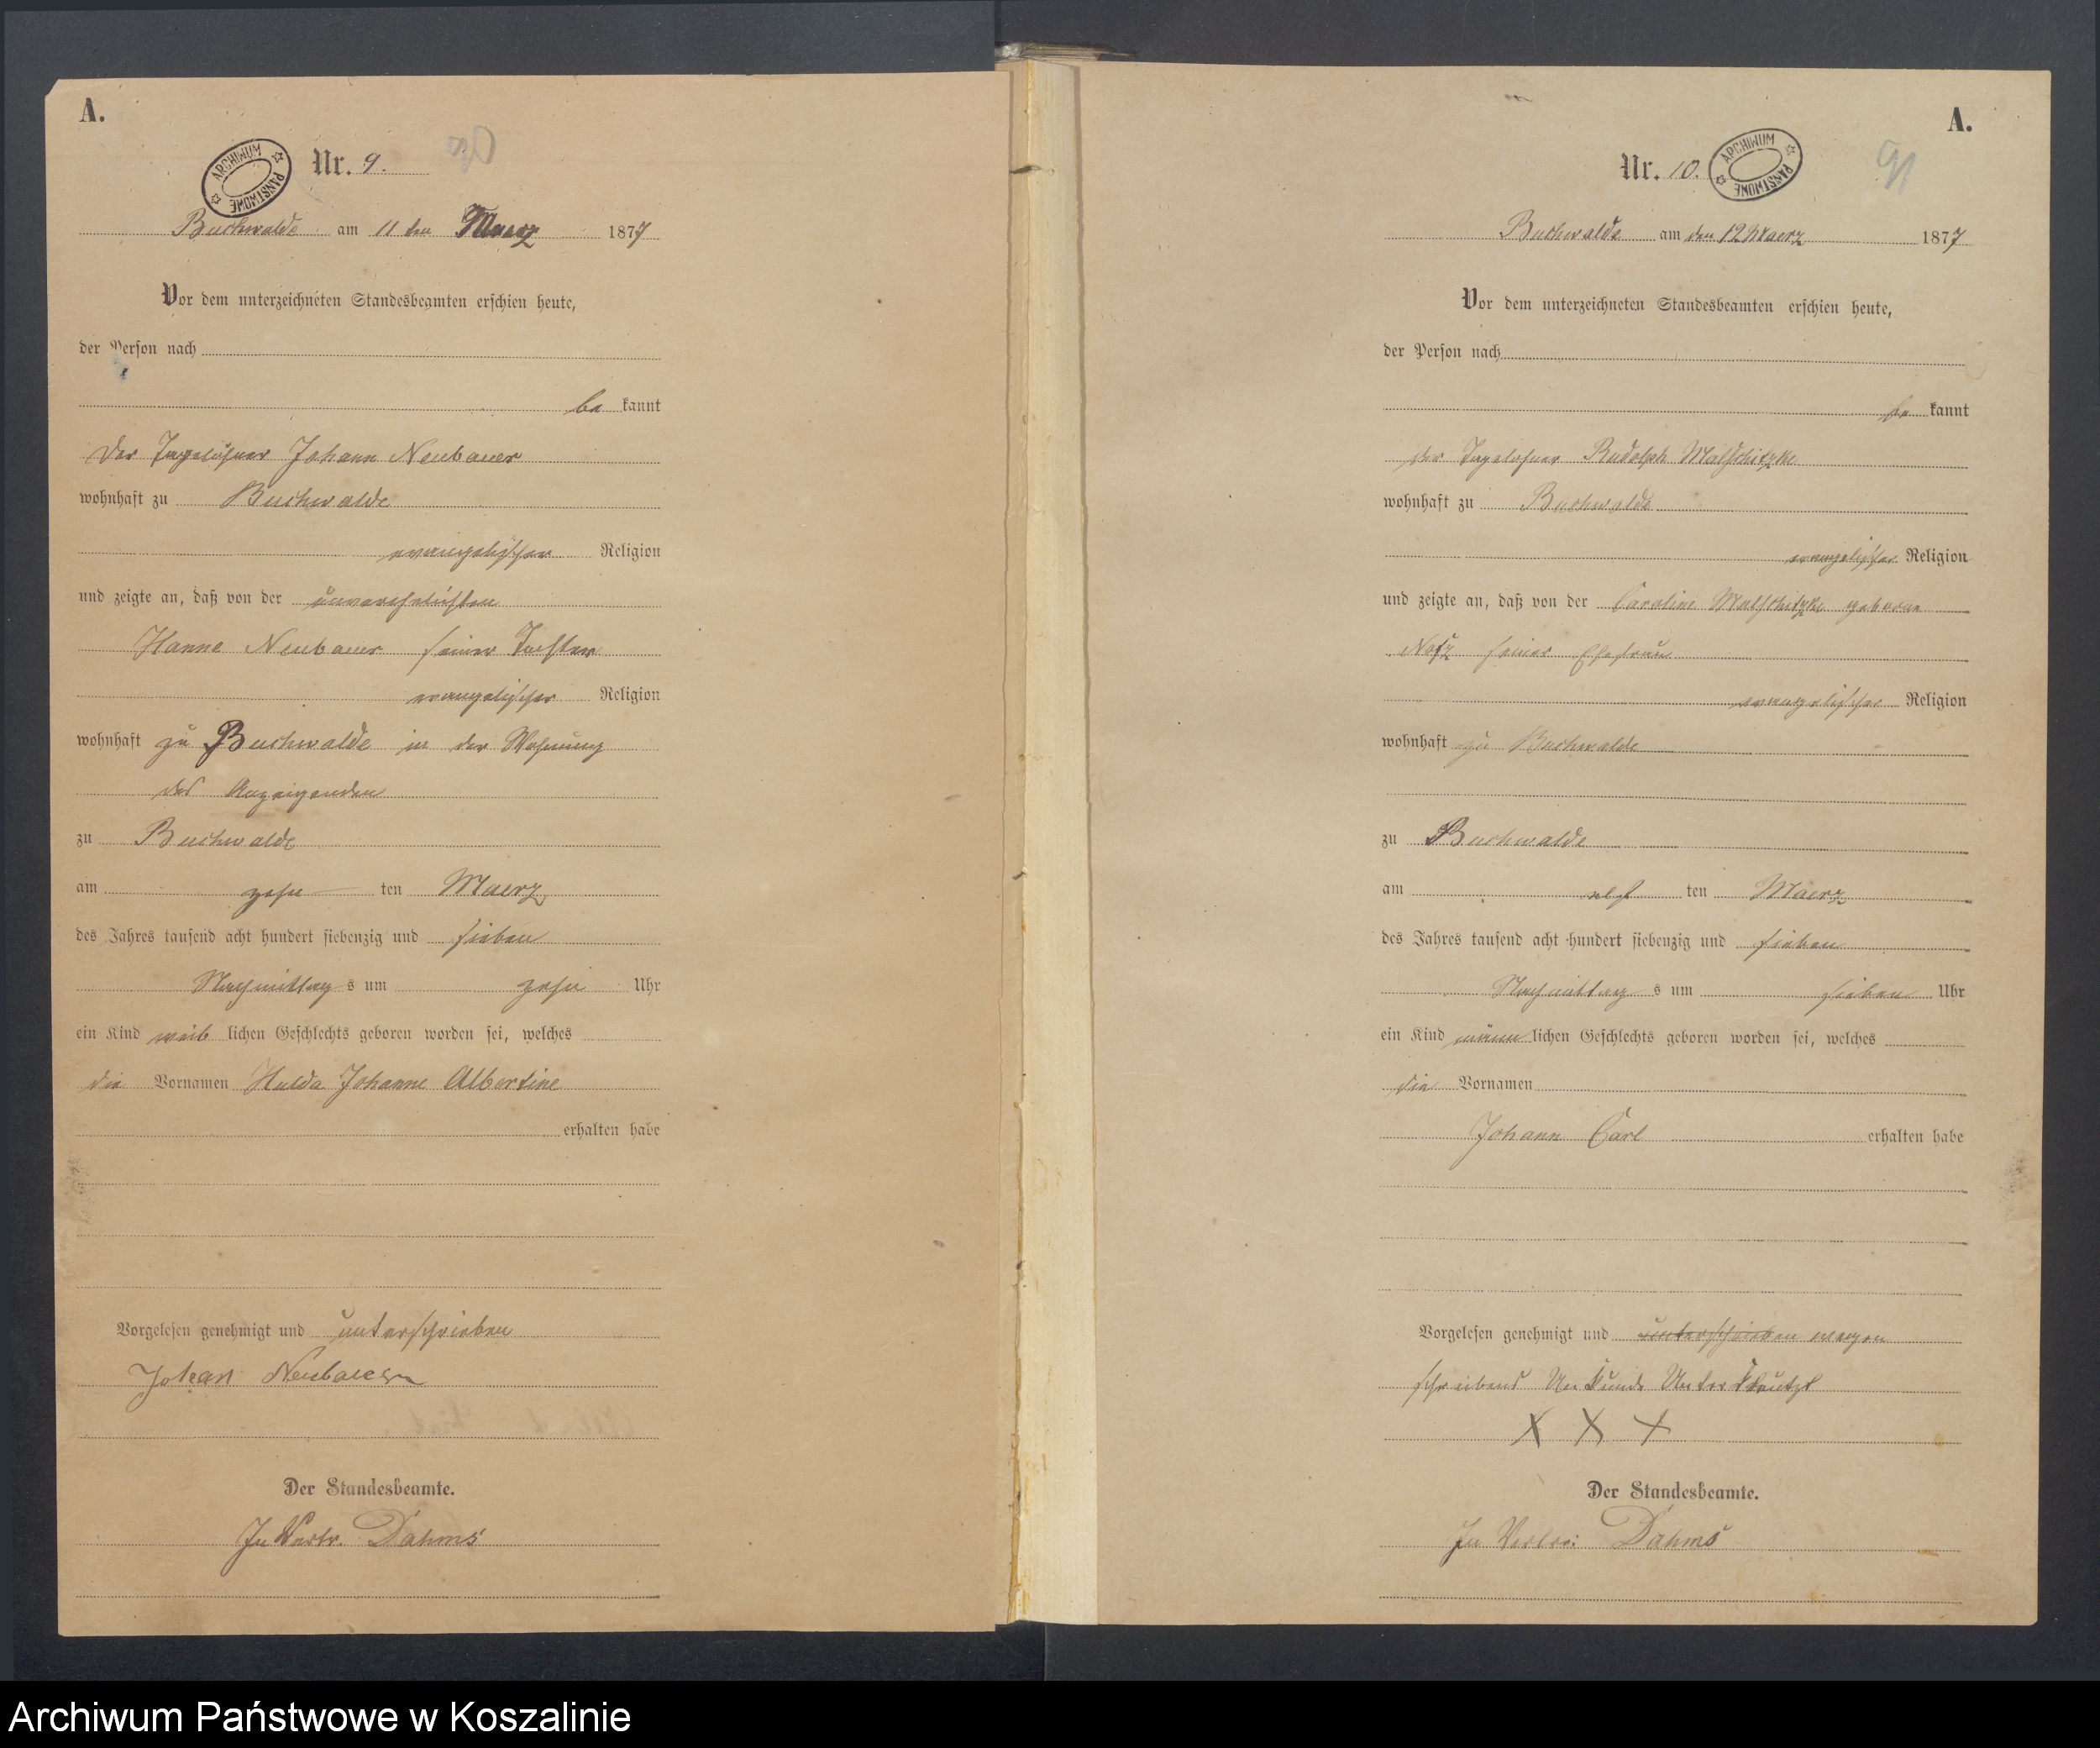 A.
ARCHIWUM PAŃSTWOWE
Nr. 9.
Buchwalde am 11 ten Maerz 1877
Vor dem unterzeichneten Standesbeamten erschien heute,
der Person nach
be kannt
Der Tagelöhner Johann Neubauer
wohnhaft zu Buchwalde
evangelischer Religion
und zeigte an, daß von der unverehelichten
Hanne Neubauer seiner Tochter
evangelischer Religion
wohnhaft zu Buchwalde in der Wohnung
des Anzeigenden
zu Buchwalde
am zehn ten Maerz
des Jahres tausend acht hundert siebenzig und sieben
Nachmittag s um zehn Uhr
ein Kind weib lichen Geschlechts geboren worden sei, welches
die Vornamen Hulda Johanne Albertine
erhalten habe
Vorgelesen genehmigt und unterschrieben
Johan Neubauer
Der Standesbeamte.
In Vertr. Dahms
A.
Nr. 10.
ARCHIWUM PAŃSTWOWE
91
Buchwalde am den 12 Maerz 1877
Vor dem unterzeichneten Standesbeamten erschien heute,
der Person nach
be kannt
der Tagelöhner Rudolph Malschitzke
wohnhaft zu Buchwalde
evangelischer Religion
und zeigte an, daß von der Caroline Malschitzke geborne
seiner Ehefrau
evangelischer Religion
wohnhaft zu Buchwalde
zu Buchwalde
am elf ten Maerz
des Jahres tausend acht hundert siebenzig und sieben
Nachmittag s um sieben Uhr
ein Kind männ lichen Geschlechts geboren worden sei, welches
die Vornamen
Johann Carl erhalten habe
Vorgelesen genehmigt und unterschrieben wegen
schreibens Unkunde Unterkreuzt
X X X
Der Standesbeamte.
In Vertr: Dahms
Archiwum Państwowe w Koszalinie